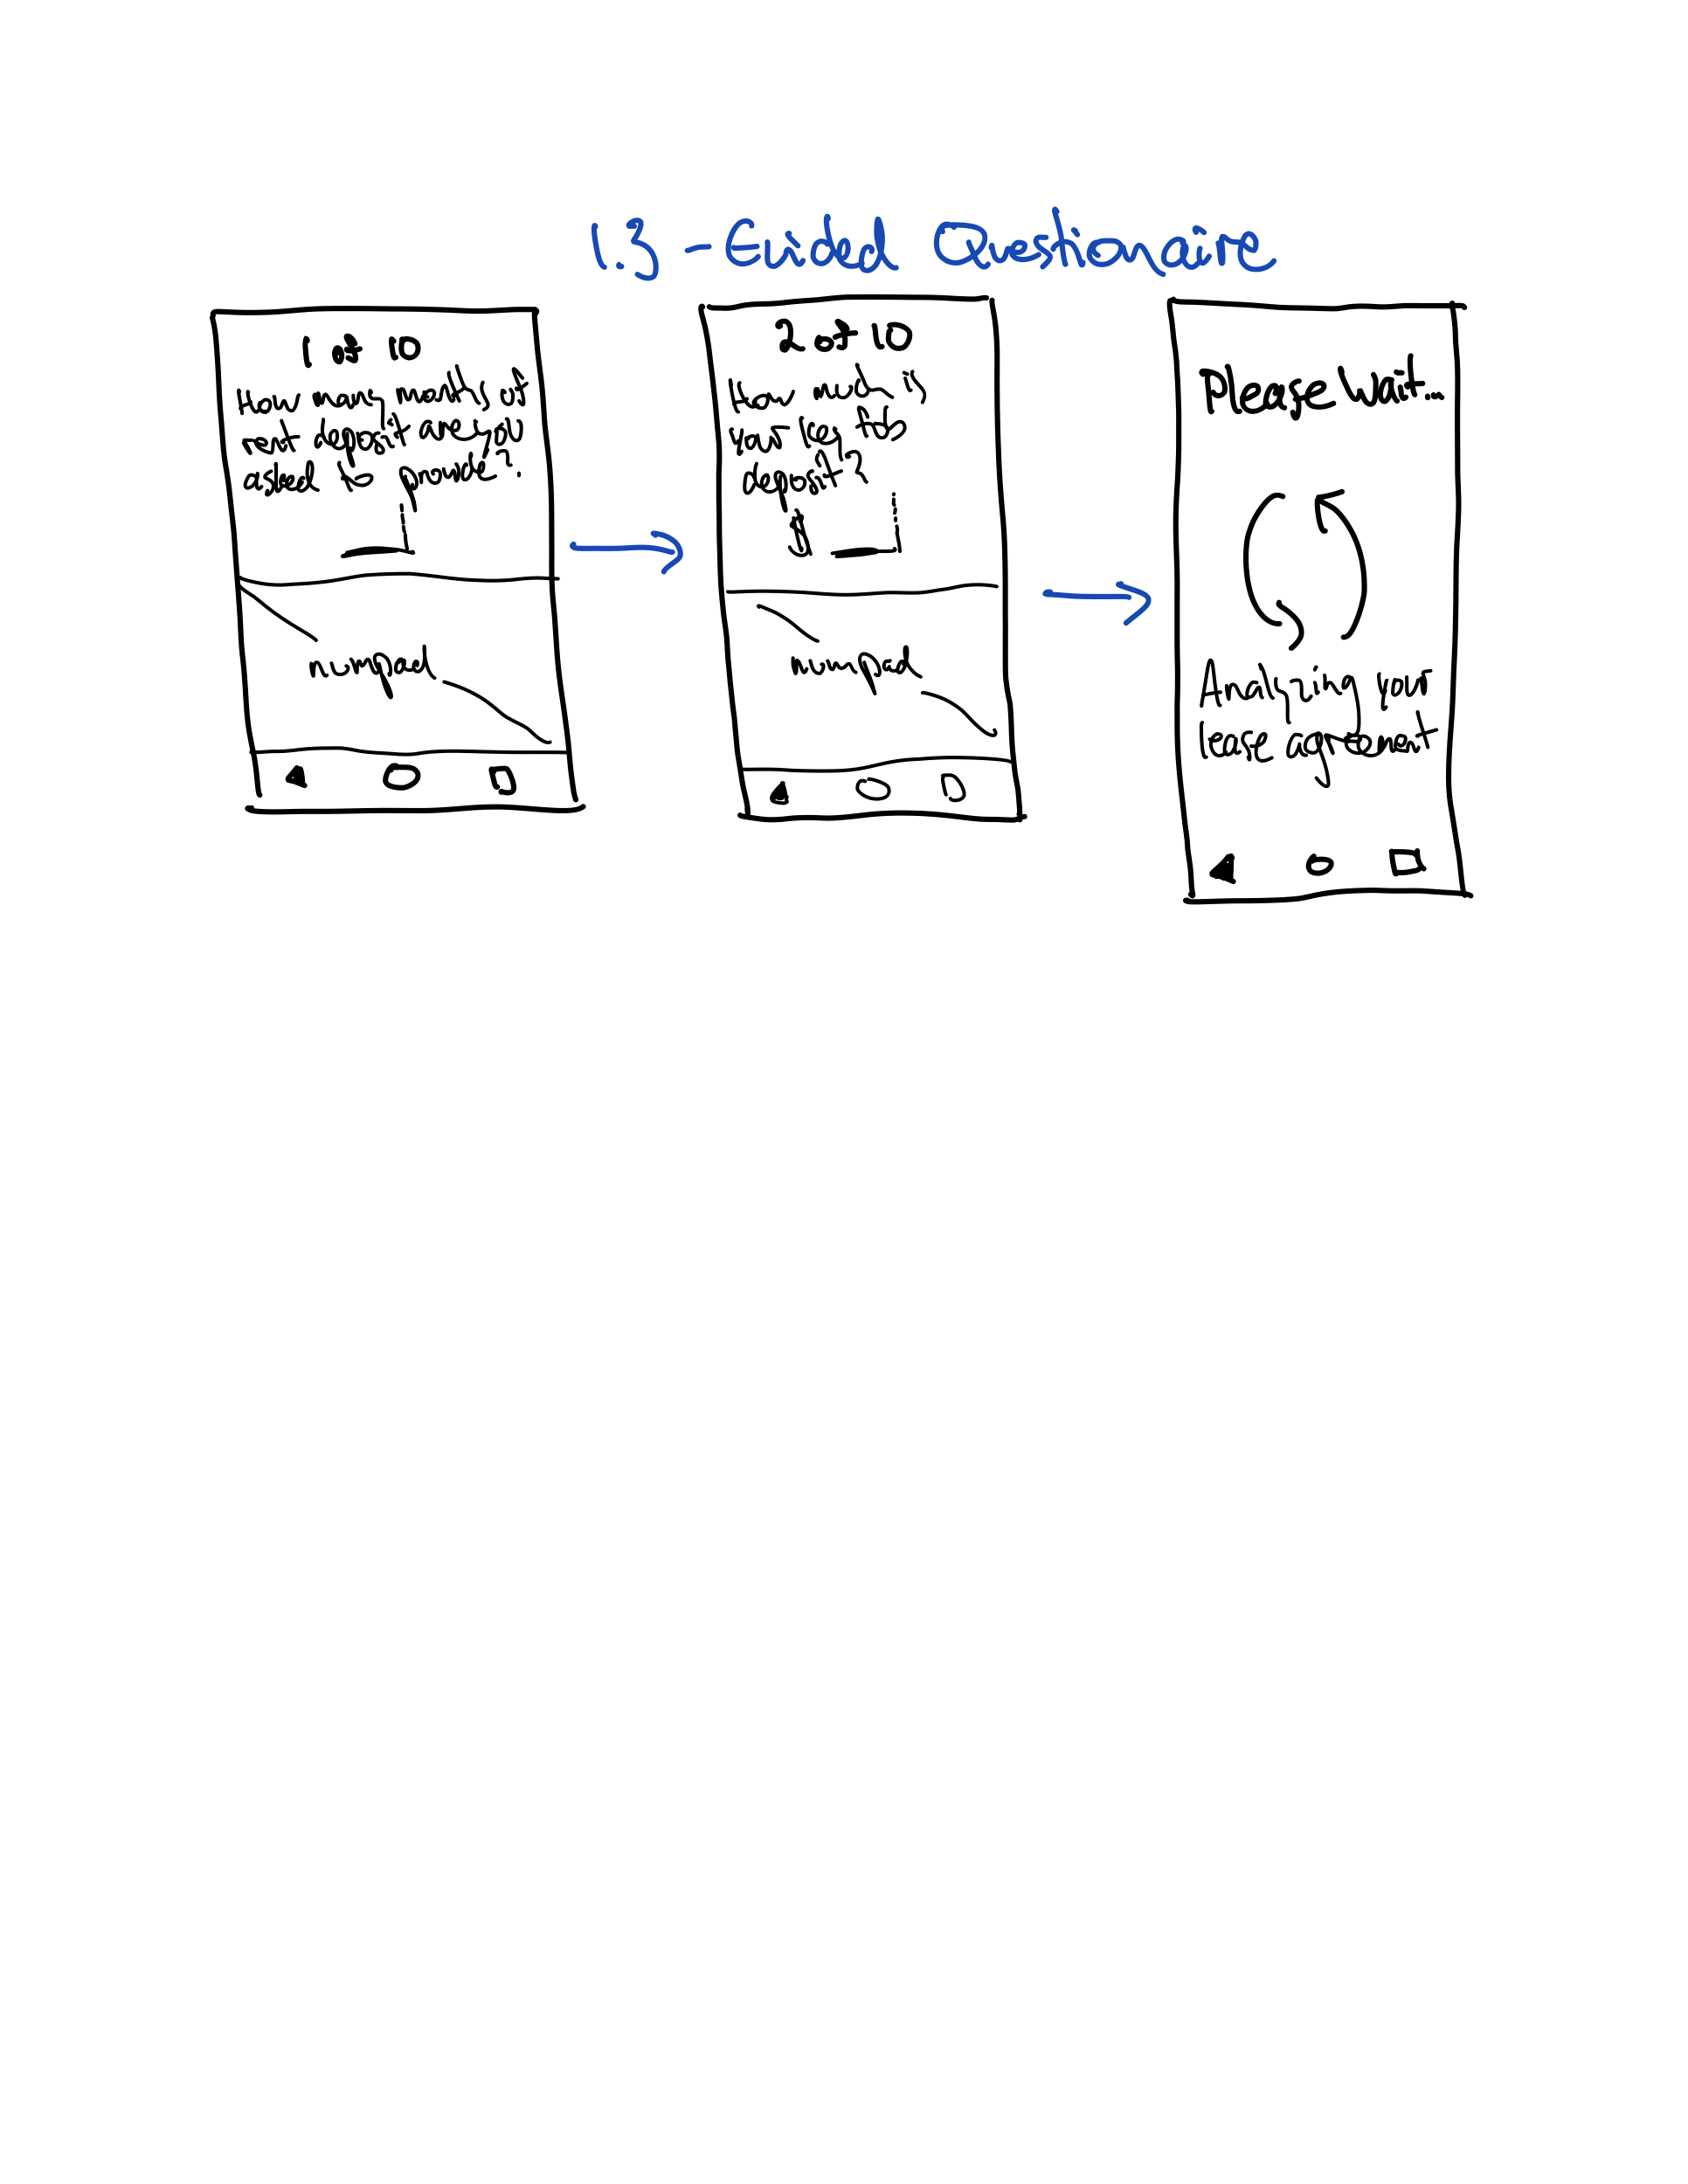 1.3 - Guided Questionaire
1 of 10
How many months of
rent deposit were you
asked to provide?
numpad
2 of 10
How much is
your key fob
deposit?
$
numpad
Please Wait...
Analyzing your
lease agreement